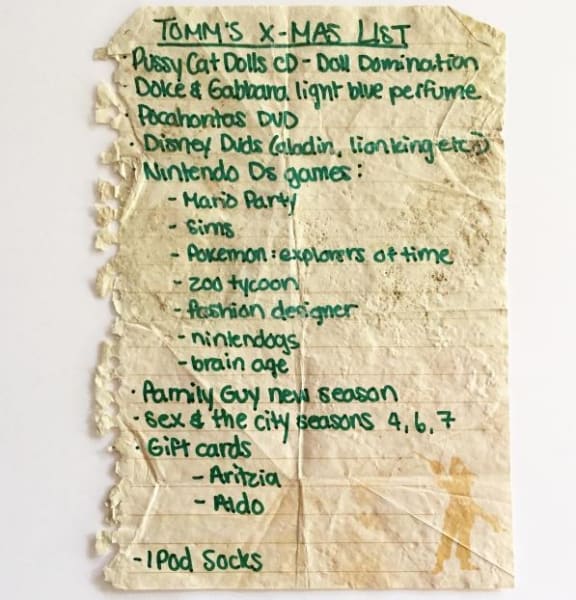 TOMM'S X-MAS LIST
· Pussy Cat Dolls CD - Doll Domination
· Dolce & Gabbana light blue perfume
· Pocahontas DVD
· Disney Dvds (aladin, lion king etc.)
· Nintendo Ds games:
- Mario Party
- Sims
- Pokemon: explorers of time
- zoo tycoon
- fashion designer
- nintendogs
- brain age
· Family Guy new season
· Sex & the city seasons 4, 6, 7
· Gift cards
- Aritzia
- Aldo
- IPod Socks